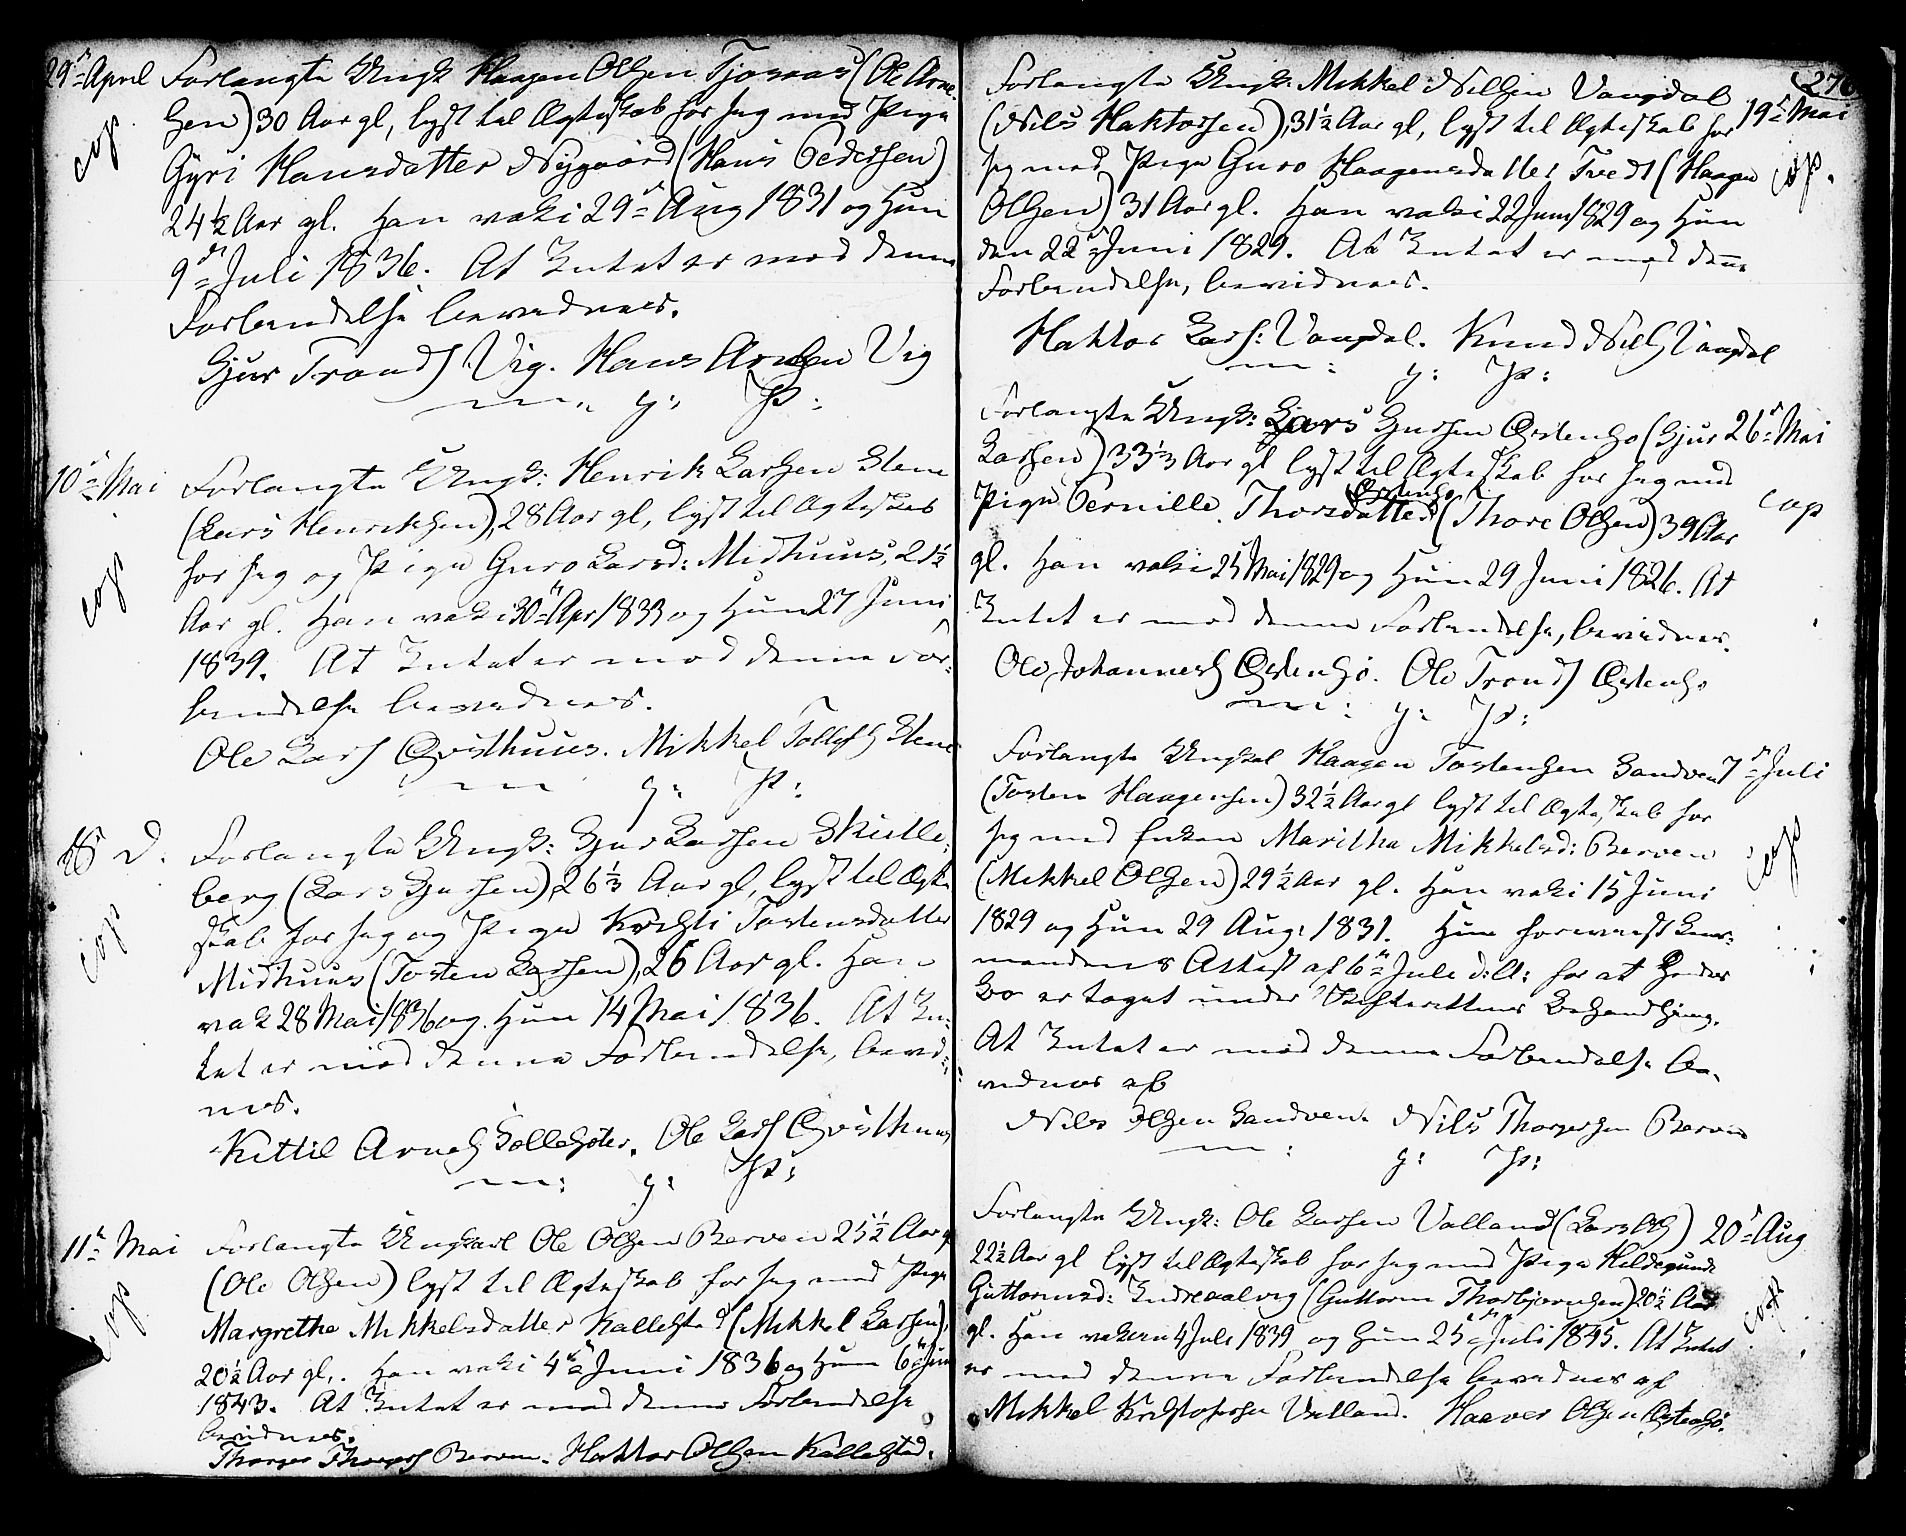 29de April Forlangte Ungk Haagen Olsen Tjoraas (Ole Arne-
sen) 30 Aar gl, lyst til Ægteskab for sig med Pige
cop.
Gyri Hansdatter Nygaard (Hans Pedersen)
24½ Aar gl. Han vak: 29de Aug 1831 og Hun
9de Juli 1836. At Intet er mod denne
Forbindelse bevidnes.
Gjur Tronds Vig. Hans Arnesen Vig
m. g: P:
10de Mai Forlangte Ungk: Henrik Larsen Stene
(Lars Henriksen), 28 Aar gl, lyst til Ægteskab
cop
for sig og Pige Guro Larsd: Midhuus, 21½
Aar gl. Han vak: 30te Apr 1833 og Hun 27 Juni
1839. At Intet er mod denne For-
bindelse bevidnes.
Ole Lars Qvisthuus. Mikkel Tollefs Stene
m g: P:
18de D. Forlangte Ungk: Gjur Larsen Skutle-
berg (Lars Gjursen), 26⅓ Aar gl, lyst til Ægte
cop
skab for sig og Pige Kristi Tostensdatter
Midhuus (Tosten Larsen), 26 Aar gl. Han
vak 28 Mai 1836 og Hun 14 Mai 1836. At In-
tet er mod denne Forbindelse, bevid-
nes.
Kittil Arnes Sollesæter. Ole Lars Qvisthuus
m: g: P:
11te Mai Forlangte Ungkarl Ole Olsen Berven 25½ Aar g
(Ole Olsen) lyst til Ægteskab for sig med Pige
cop
Margrethe Mikkelsdatter Kallestad (Mikkel Larsen),
20½ Aar gl,. Han vak: 4de Juni 1836 og Hun 6te Juni
1843. At Intet er mod denne Forbindelse
bevidnes.
Thorger Thorgers Berven. Haktor Olsen Kallestad.
276
Forlangte Ungk: Mikkel Nilsen Vangdal
19de Mai
(Nils Haktorsen), 31½ Aar gl, lyst til Ægteskab for
cop.
sig med Pige Guro Haagensdatter Tvedt (Haagen
Olsen) 31 Aar gl. Han vak: 22 Juni 1829 og Hun
den 22de Juni 1829. At Intet er mod denne
Forbindelse, bevidnes.
Haktor Lars: Vangdal. Knud Nils Vangdal
m: g: P:
Forlangte Ungk: Lars Gjursen Østensø (Gjur
26de Mai
Larsen) 33⅓ Aar gl lyst til Ægteskab for sig med
cop
Østensø
Pige Pernille Thorsdatter (Thore Olsen) 39 Aar
gl. Han vak: 25 Mai 1829 og Hun 29 Juni 1826. At
Intet er mod denne Forbindelse, bevidnes.
Ole Johannes Østensø. Ole Tronds Østensø
m: g: P:
Forlangte Ungkal Haagen Tostensen Sandven
7de Juli
(Tosten Haagensen) 32½ Aar gl lyst til Ægteskab for
cop
sig med Enken Maritha Mikkelsd: Berven
(Mikkel Olsen) 29½ Aar gl. Han vak: 15 Juni
1829 og Hun 29 Aug: 1831. Hun foreviist Lens-
mandens Attest af 6te Juli d: A: for at hendes
Bo er taget under Skifterettens Behandling.
At Intet er mod denne Forbindelse be-
vidnes af
Nils Olsen Sandven. Nils Thorgersen Berven
m: g: P:
Forlangte Ungk: Ole Larsen Valland (Lars Ols)
20de Aug
22½ Aar gl lyst til Ægteskab for sig med Pige Hildegunde
cop
Guttormsd: Indreaalvig (Guttorm Thorbjørnsen) 20½ Aar
gl. Han vakcin 4 Juli 1839 og Hun 25de Juli 1845. At Intet
er mod denne Forbindelse bevidnes af
Mikkel Kristofersen Valland. Haaver Olsen Østensø.